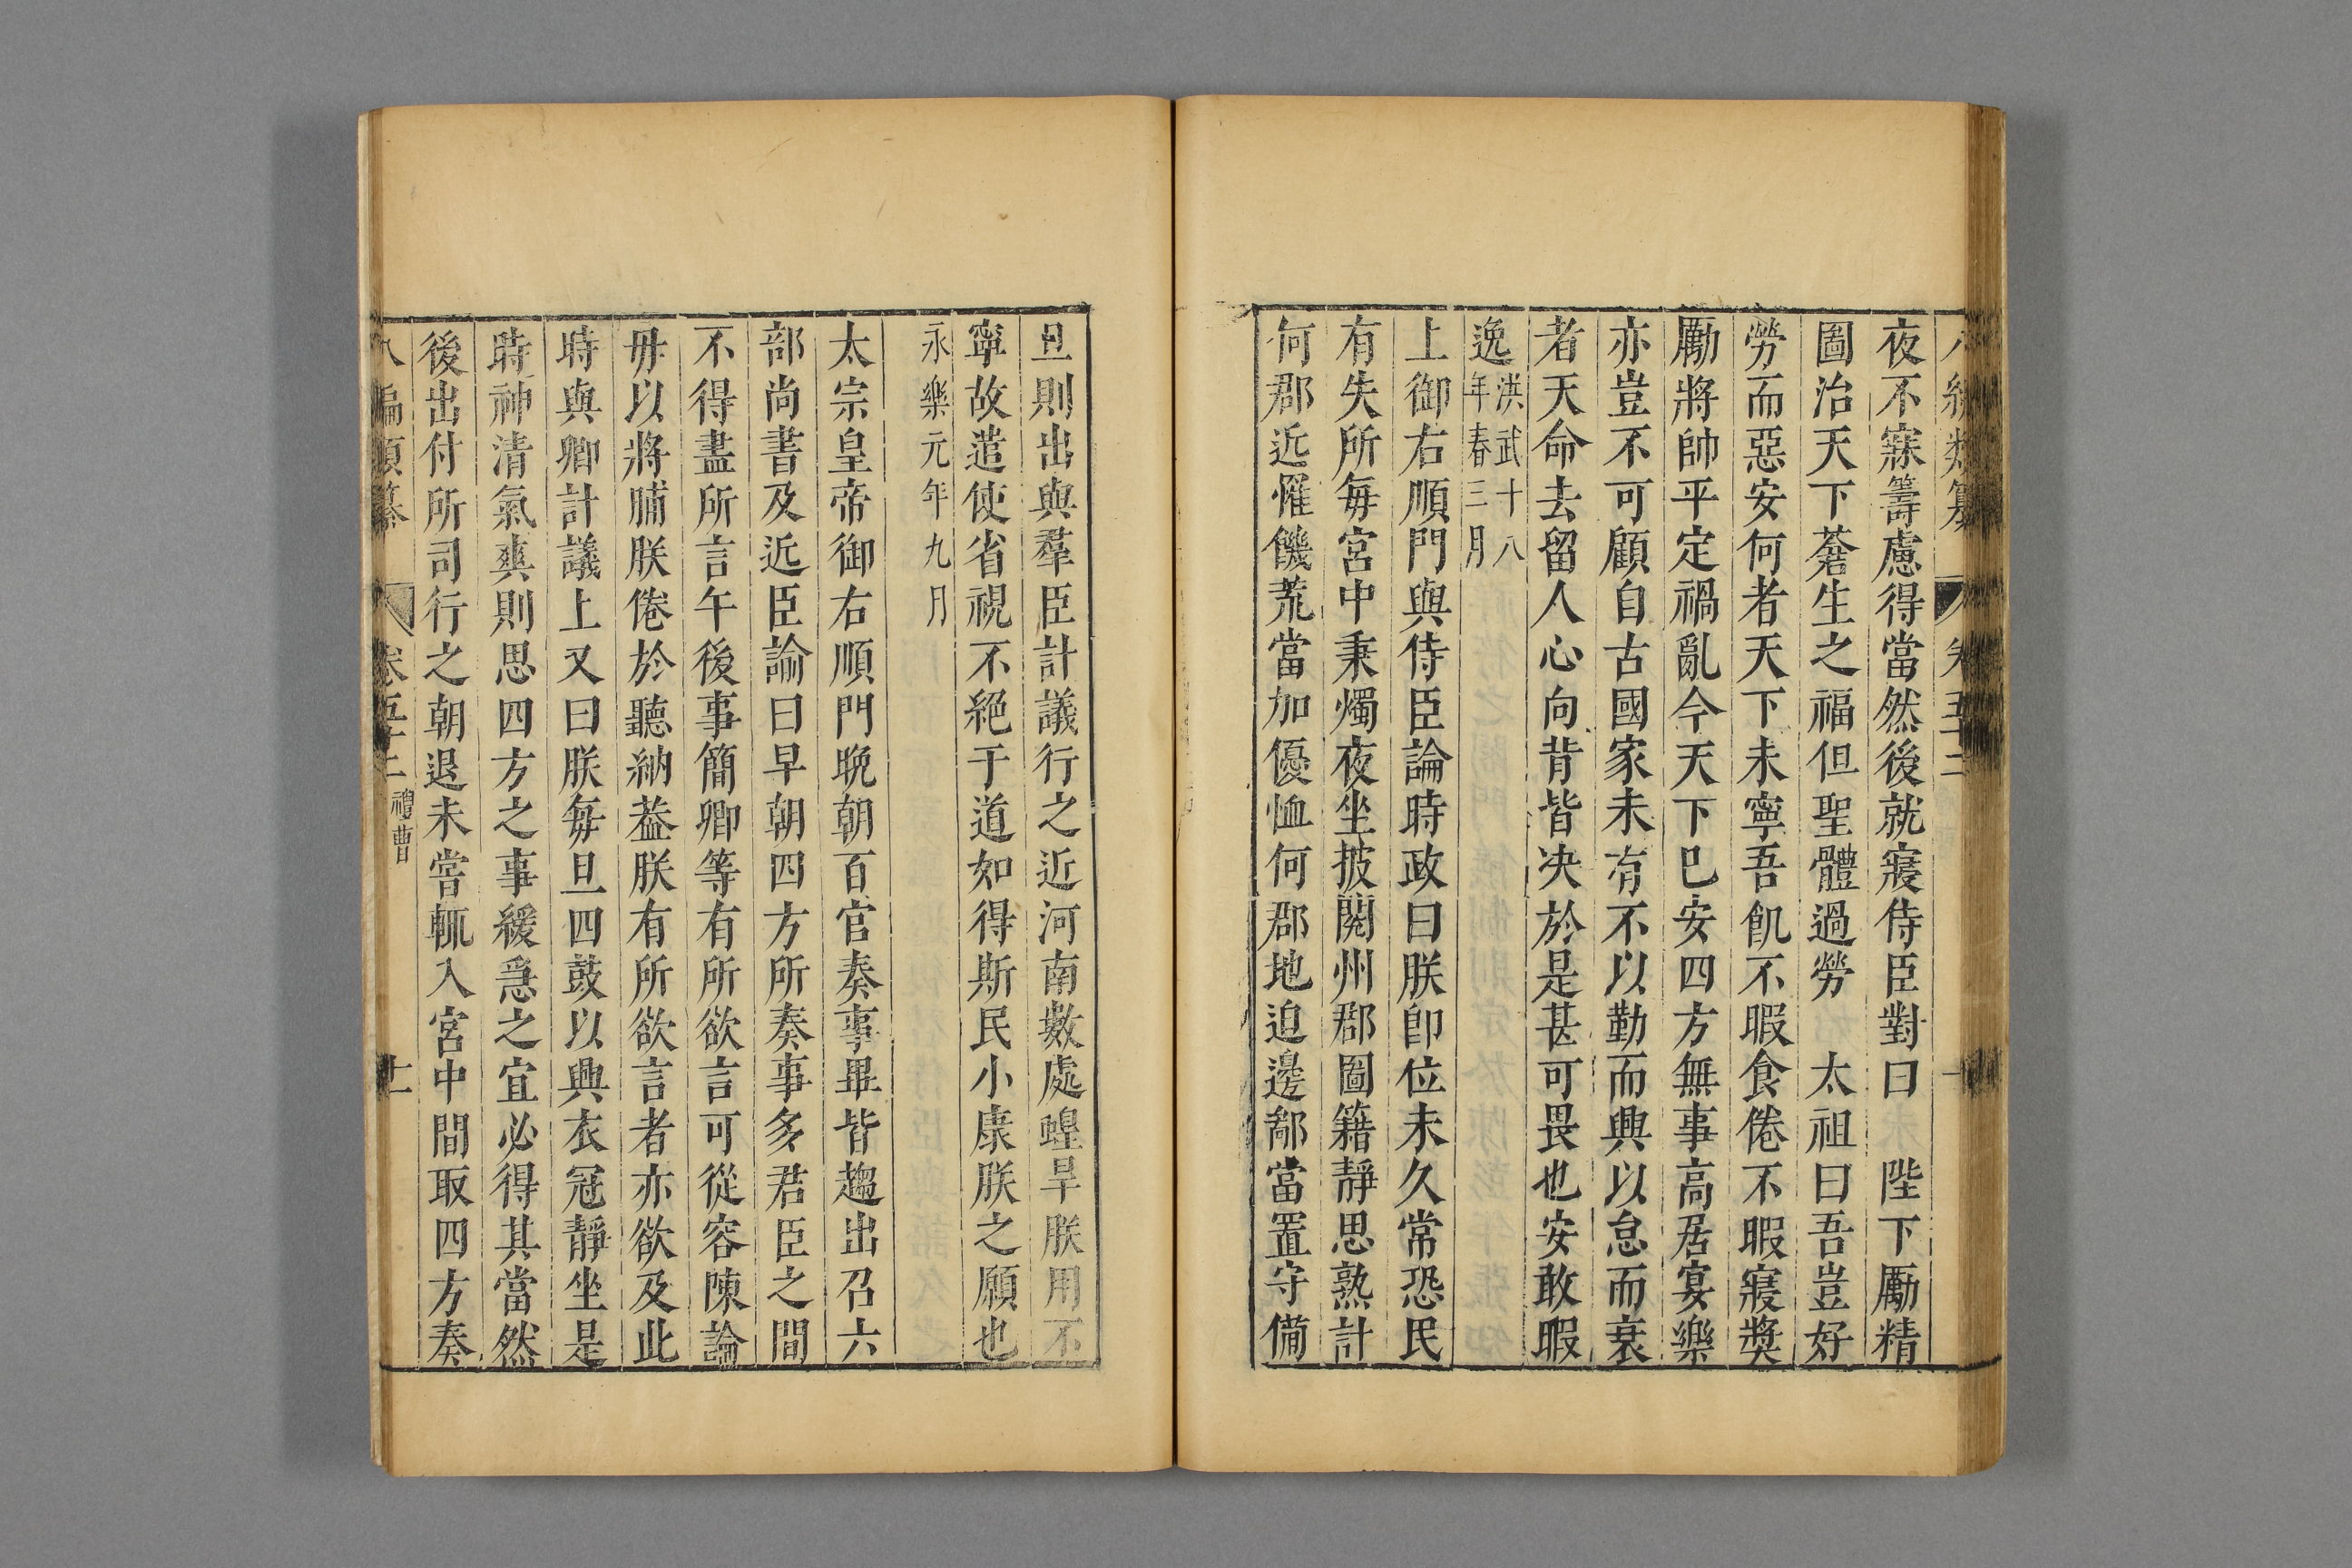 夜不寐籌慮得當然後就寢侍臣對曰　陛下勵精
圖治天下蒼生之福但聖體過勞　太祖曰吾豈好
勞而惡安何者天下未寧吾飢不暇食倦不暇寢奬
勵將帥平定禍亂今天下已安四方無事高居宴樂
亦豈不可顧自古國家未有不以勤而興以怠而衰
者天命去留人心向背皆决於是甚可畏也安敢暇
逸洪武十八
年春三月
上御右順門與侍臣論時政曰朕卽位未久常恐民
有失所每宮中秉燭夜坐披閱州郡圖籍靜思熟計
何郡近罹饑荒當加優恤何郡地迫邊鄙當置守備
旦則出與羣臣計議行之近河南數處蝗旱朕用不
寧故遣使省視不絕于道如得斯民小康朕之願也
永樂元年九月
太宗皇帝御右順門晩朝百官奏事畢皆趨出召六
部尚書及近臣諭曰早朝四方所奏事多君臣之間
不得盡所言午後事簡卿等有所欲言可從容陳論
毋以將脯朕倦於聽納葢朕有所欲言者亦欲及此
時與卿計議上又曰朕每旦四鼓以興衣冠靜坐是
時神清氣爽則思四方之事緩急之宜必得其當然
後出付所司行之朝退未嘗輒入宮中間取四方奏
八編類纂　卷五十二　禮曹　十一